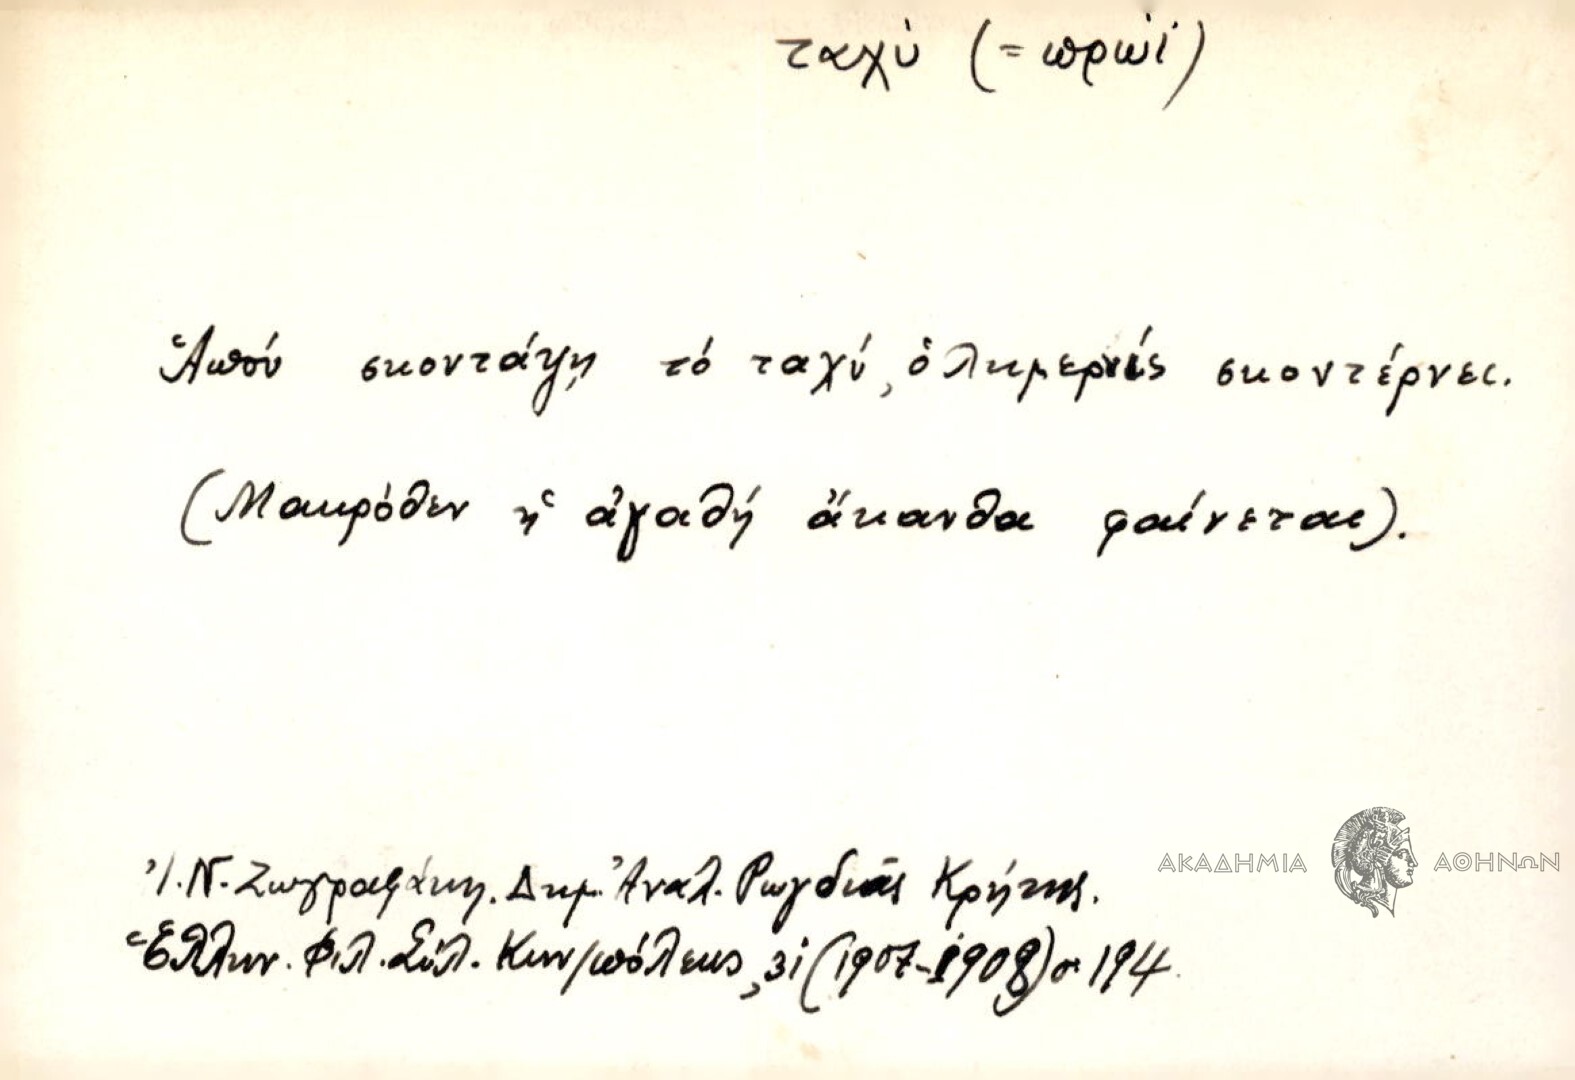 ταχύ (= πρωΐ)
Ἁπού σκοντάψῃ τό ταχύ, ὁλημερνίς σκοντέρνει.
(Μακρόθεν ἡ ἀγαθή ἄκανθα φαίνεται).
Ἰ. Ν. Ζωγραφάκη. Δημ. Ἀναλ. Ρωγδιᾶς Κρήτης.
Ἑλλην. Φιλ. Σύλ. Κων/πόλεως, 31 (1907-1908) σ. 194
ΑΚΑΔΗΜΙΑ ΑΘΗΝΩΝ